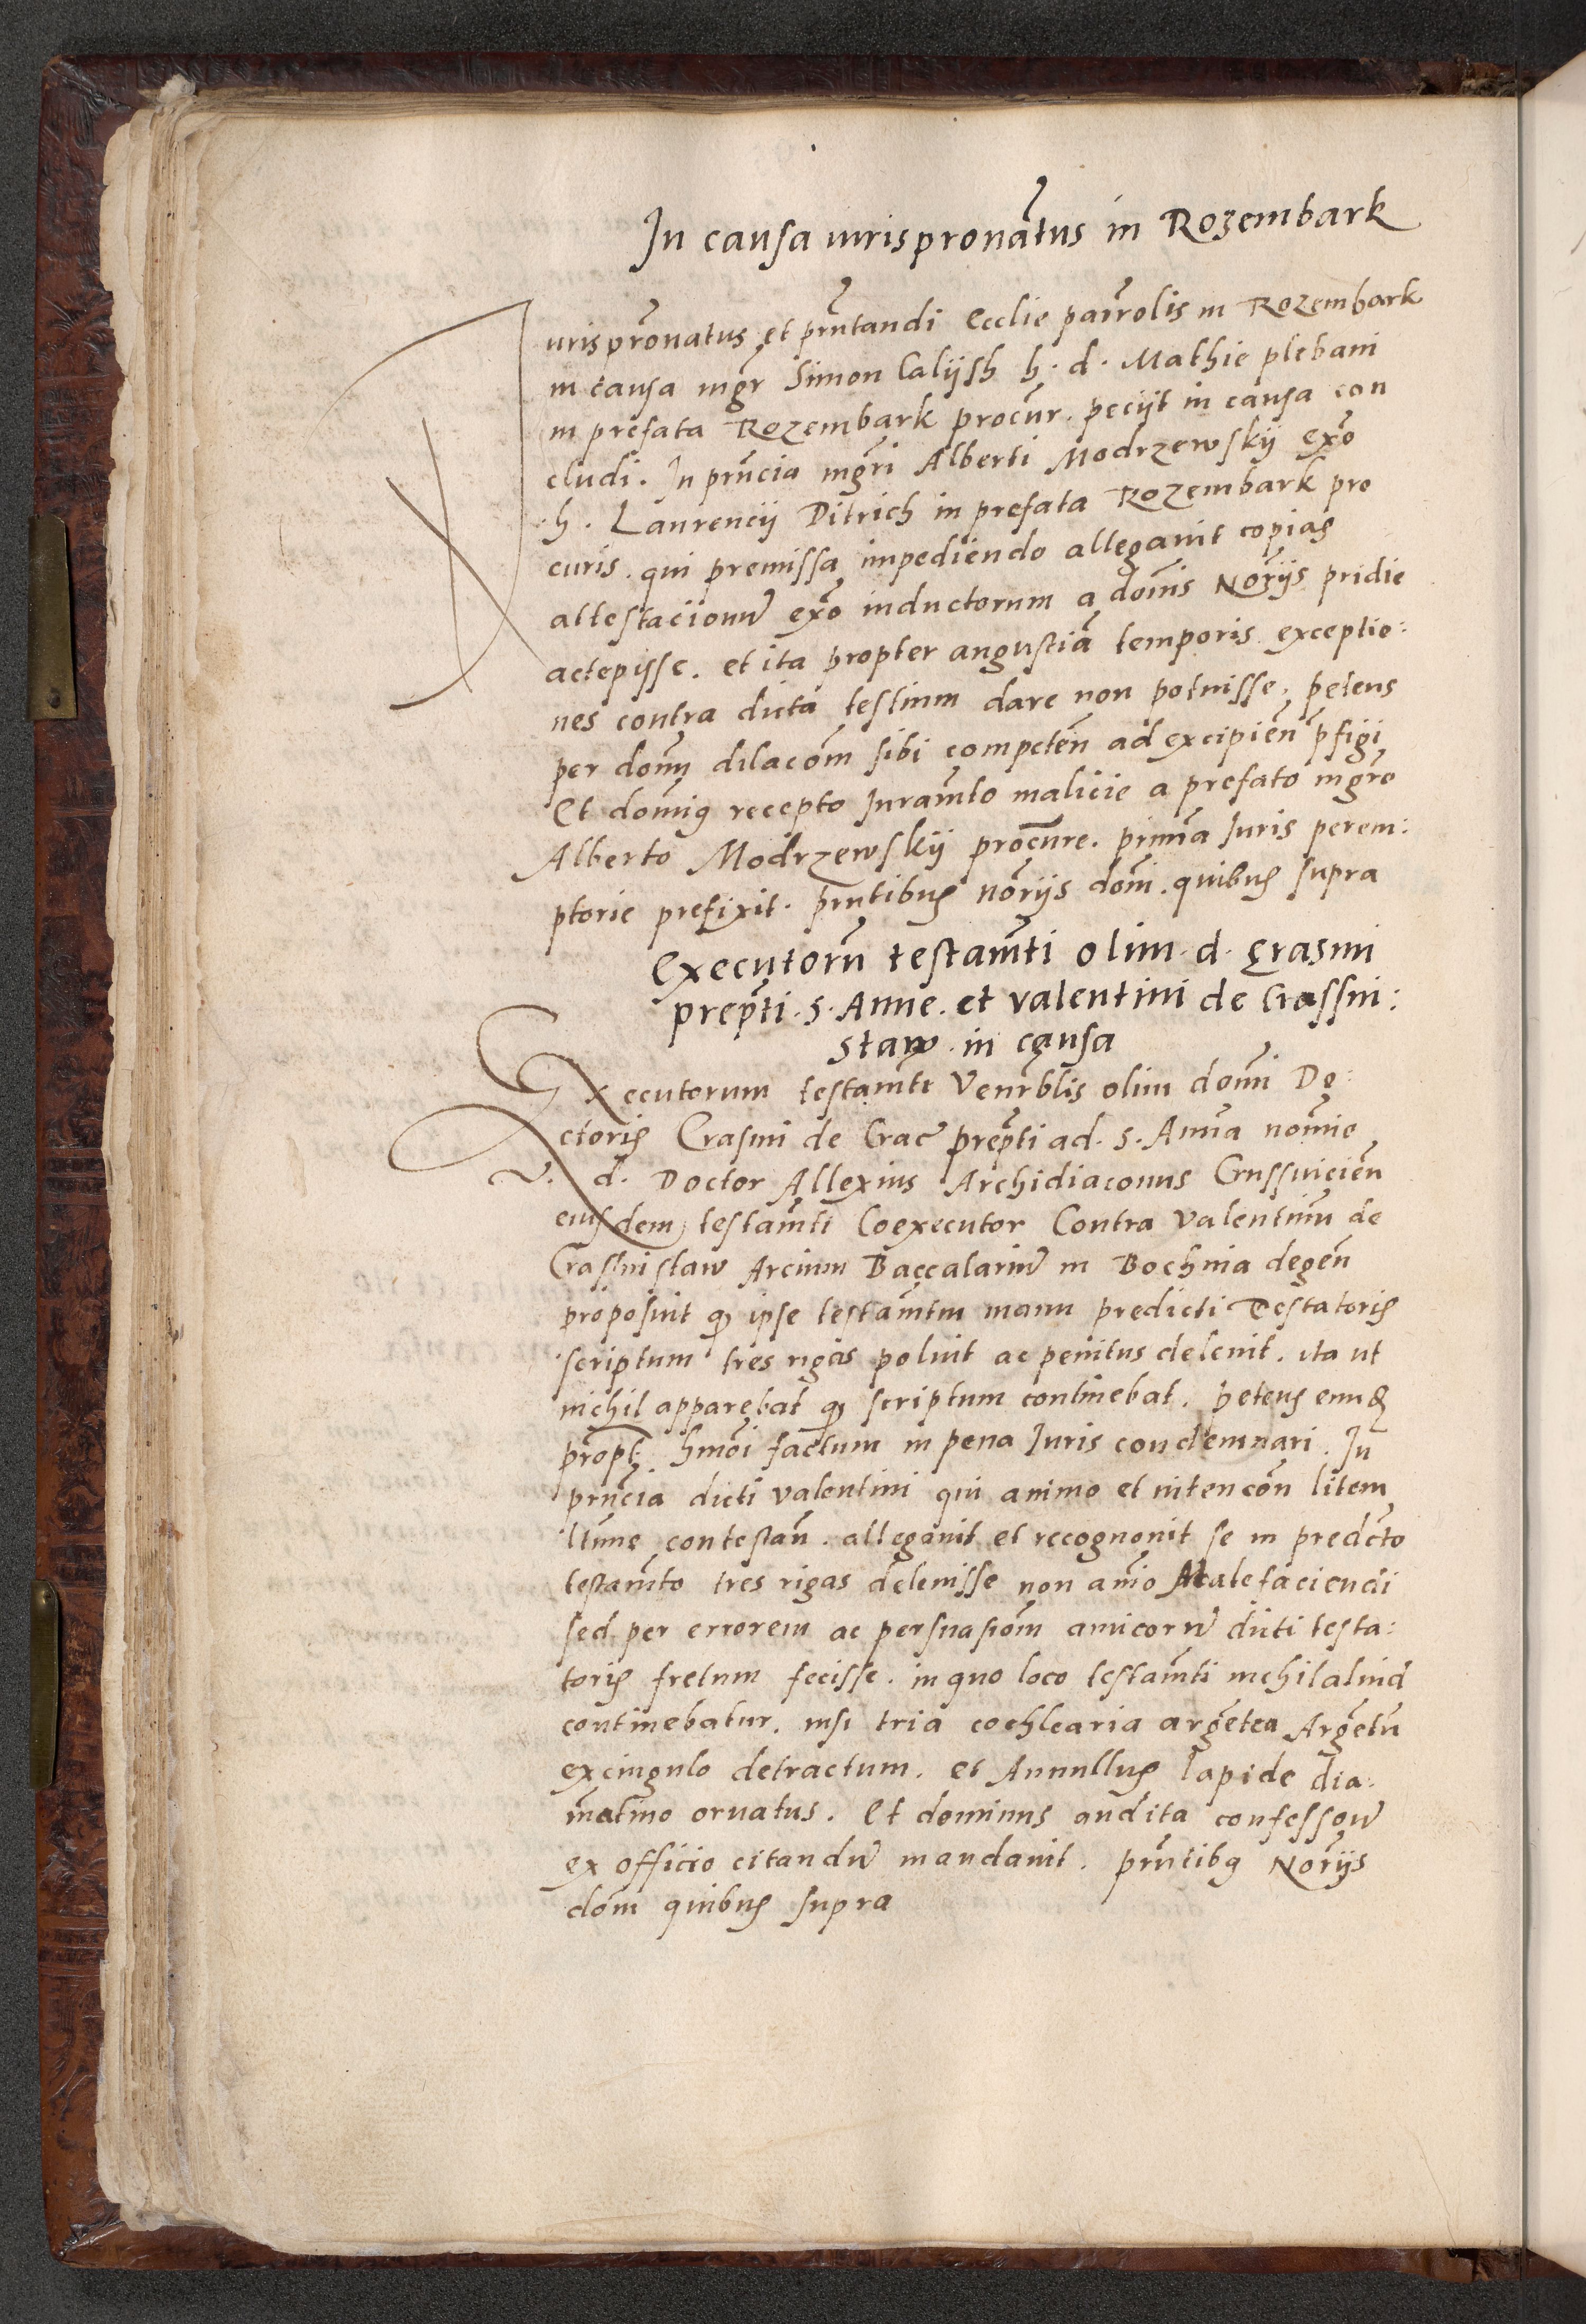 In causa iurispronatus in Rozembark
Iurispronatus et prntandi Ecclie parrolis in Rozembark
in causa mgr Simon Calijsh h. d. Mathie plebani
in prefata Rozembark procur. peciit in causa con
cludi. In prncia mgri Alberti Modrzewskij exo
h. Laurencij Ditrich in prefata Rozembark pro
curis. qui premissa impediendo allegavit copias
attestacionum exo inductorum a domis Norijs pridie
accepisse. et ita propter angustia temporis exceptio:
nes contra dicta testium dare non potuisse, petens
per domu dilacom sibi competen ad excipien pfigi
Et domis recepto Juramto malicie a prefato mgro
Alberto Modrzewskij procure. prima Iuris perem:
ptorie prefixit. prntibus norijs domi. quibus supra
Executoru testamti olim. d. Erasmi
prepti. S. Anne. et valentini de Crassni:
staw. in causa
Executorum testamti Venrblis olim domi Do:
ctoris Erasmi de Crac prepti ad. S. Anna nomie
V. d. Doctor Allexius Archidiaconus Crussvicien
eiusdem testamti Coexecutor Contra Valentinu de
Crasnistaw Arcium Baccalarium in Bochnia degen
proposuit quod ipse testamtm manu predicti Testatoris
scriptum tres rigas poluit ac penitus delevit. ita ut
nichil apparebat quod scriptum continebat. petens eundem
propt. hmoi factum in pena Iuris condemnari. In
prncia dicti valentini qui animo et intencon litem
ltime contestan. allegavit et recognovit se in predcto
testamto tres rigas delevisse non amio Malefaciendi
sed per errorem ac persuasiom amicorum dicti testa:
toris fretum fecisse. in quo loco testamti nichil aliud
continebatur. nisi tria cochlearia argetea Argetu
ex cingulo detractum. et Annullus lapide dia:
matino ornatus. Et dominus audita confessom
ex officio citandum mandavit. prntibus Norijs
dom quibus supra